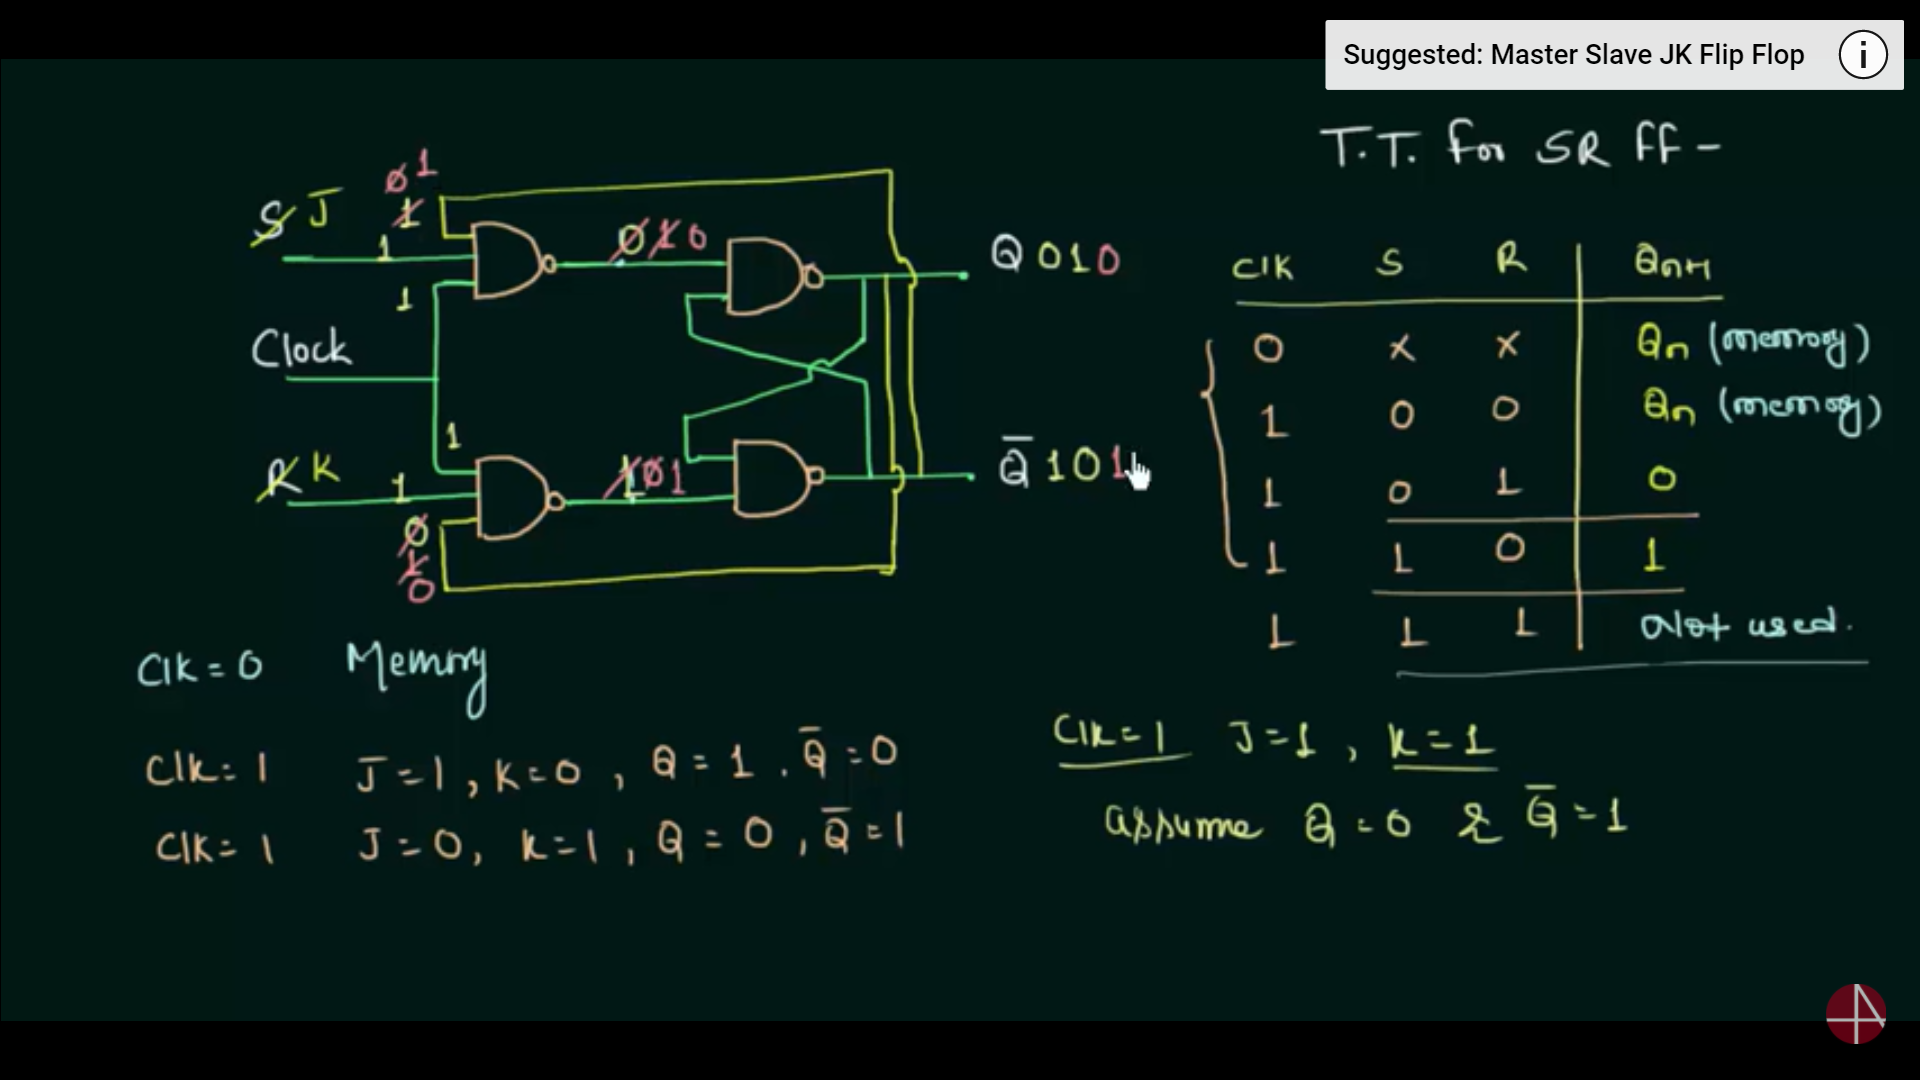 Suggested: Master Slave JK Flip Flop
T.T. for SR ff -
S J 0 1
1
1
0 1 0
Q 0 1 0
1
Clock
1
R K
1
1 0 1
Q̅ 1 0 1
0
1
0
Clk S R Qn+1
0 x x Qn (memory)
1 0 0 Qn (memory)
1 0 1 0
1 1 0 1
1 1 1 Not used.
Clk = 0 Memory
Clk = 1 J = 1, K = 0, Q = 1. Q̅ = 0
Clk = 1 J = 0, K = 1, Q = 0, Q̅ = 1
Clk = 1 J = 1, K = 1
assume Q = 0 & Q̅ = 1